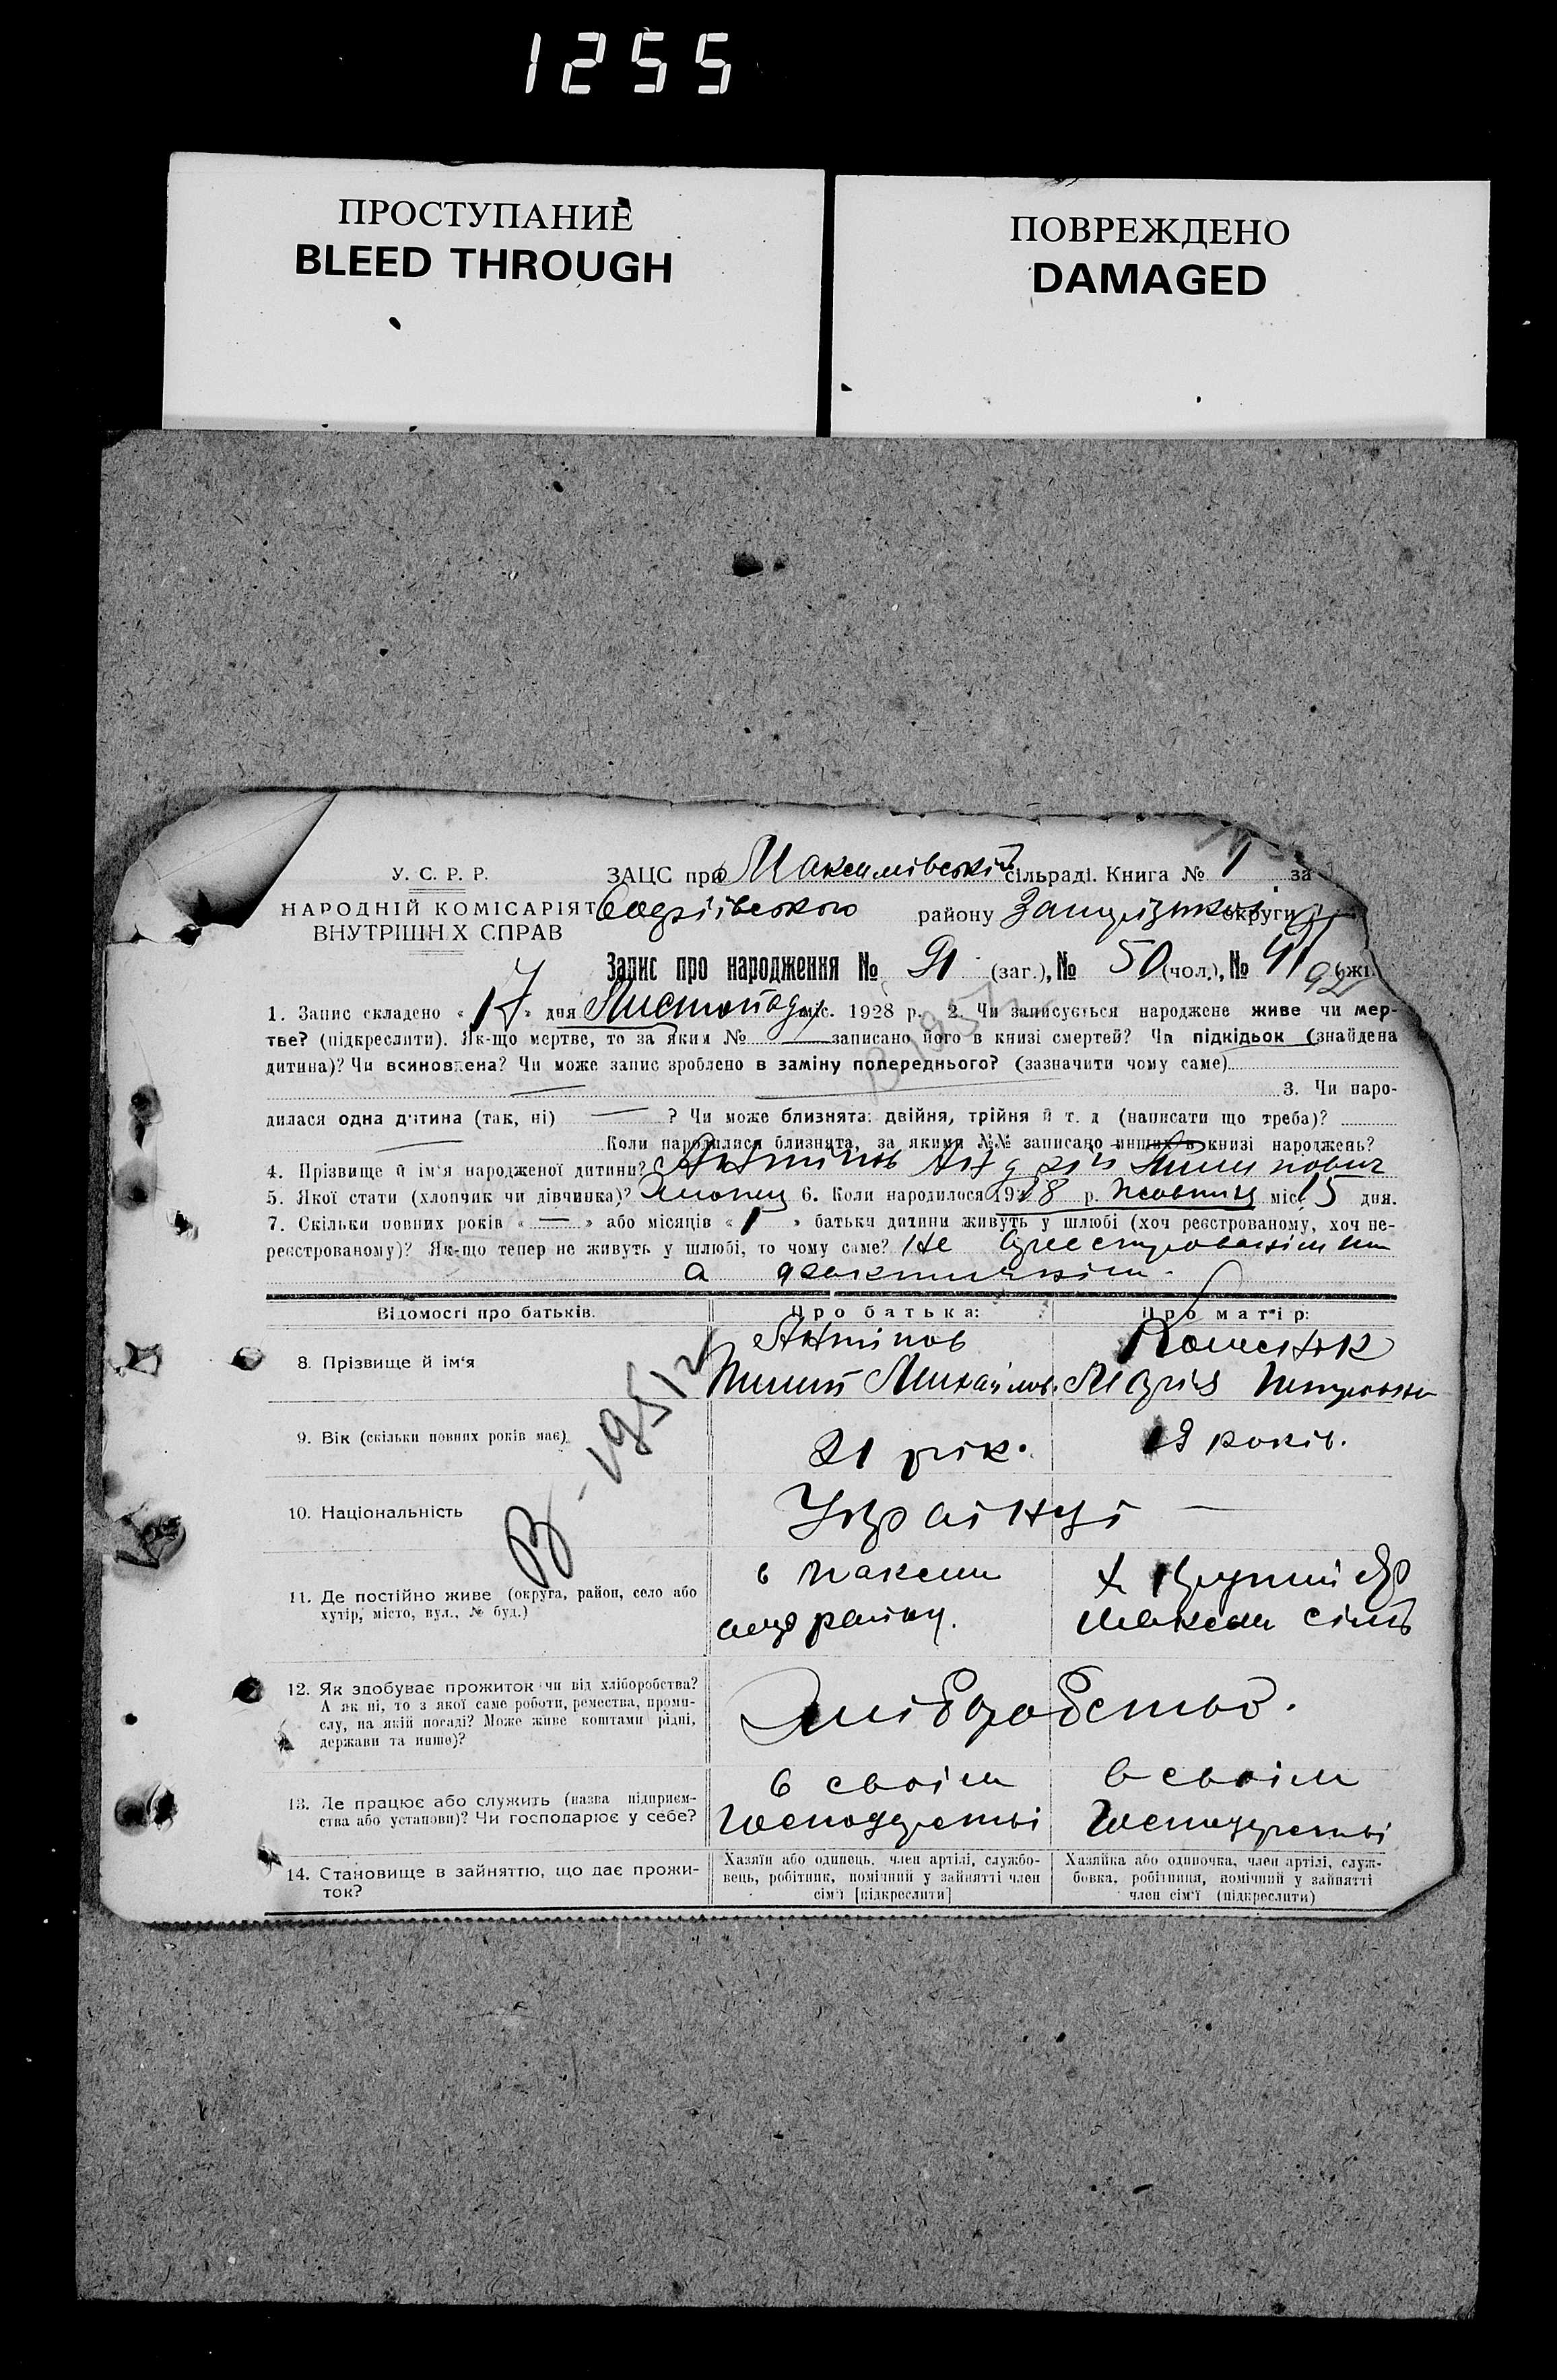 1255
ПРОСТУПАНИЕ
BLEED THROUGH
ПОВРЕЖДЕНО
DAMAGED
У. С. Р. Р.
НАРОДНІЙ КОМІСАРІЯТ
ВНУТРІШН Х СПРАВ
ЗАЦС при Максимівській сільраді. Книга № 1 за
району округи
Запис про народження № 91 (заг.), № 50 (чол.), № 41 (жі
1. Запис складено « 17 » дня Листопада міс. 1928 р. 2. Чи записується народжене живе чи мер-
тве? (підкреслити). Як-що мертве, то за яким № записано його в книзі смертей? Чи підкідьок (знайдена
дитина)? Чи всиновлена? Чи може запис зроблено в заміну попереднього? (зазначити чому саме)
3. Чи наро-
дилася одна дитина (так, ні) — ? Чи може близнята: двійня, трійня й т. д (написати що треба)?
Коли народилися близнята, за якими №№ записано инших в книзі народжень?
4. Прізвище й ім'я народженої дитини? Антіпов Андрій Пилипович
5. Якої стати (хлопчик чи дівчинка)? Хлопец 6. Коли народилося 1928 р. Жовтня міс. 15 дня.
7. Скільки повних років « — » або місяців « 1 » батьки дитини живуть у шлюбі (хоч реєстрованому, хоч не-
реєстрованому)? Як-що тепер не живуть у шлюбі, то чому саме? Не
а фактичнім
Відомості про батьків. Про батька: Про матір:
8. Прізвище й ім'я
Антіпов
Пилип Михайлов. Марія
9. Вік (скільки повних років має)
21 рік. 19 років.
В - 1951
10. Національність
Українці —
11. Де постійно живе (округа, район, село або
хутір, місто, вул., № буд.)
в Максим
району.
х. Крутий Яр
Максим сілр
12. Як здобуває прожиток чи від хліборобства?
А як ні, то з якої саме роботи, ремества, проми-
слу, на якій посаді? Може живе коштами рідні,
держави та инше)?
Хліборобство.
13. Де працює або служить (назва підприєм-
ства або установи)? Чи господарює у себе?
в своїм
Господарстві
в своїм
Господарстві
14. Становище в зайняттю, що дає прожи-
ток?
Хазяїн або одинець, член артілі, службо-
вець, робітник, помічний у зайнятті член
сім'ї [підкреслити]
Хазяйка або одиночка, член артілі, служ-
бовка, робітниця, помічний у зайнятті
член сім'ї (підкреслити)